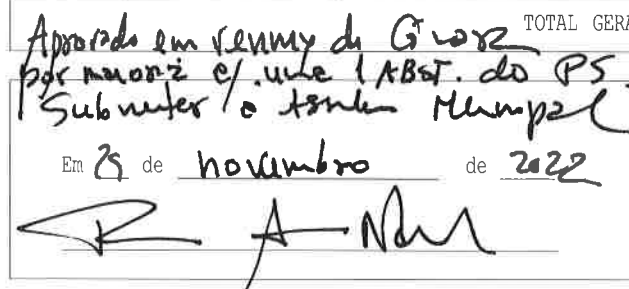 TOTAL GERA
Aprovado em reunião de
por maioria c/ uma 1 ABST. do PS.
Submeter à Assembleia Municipal
Em 25 de novembro de 2022